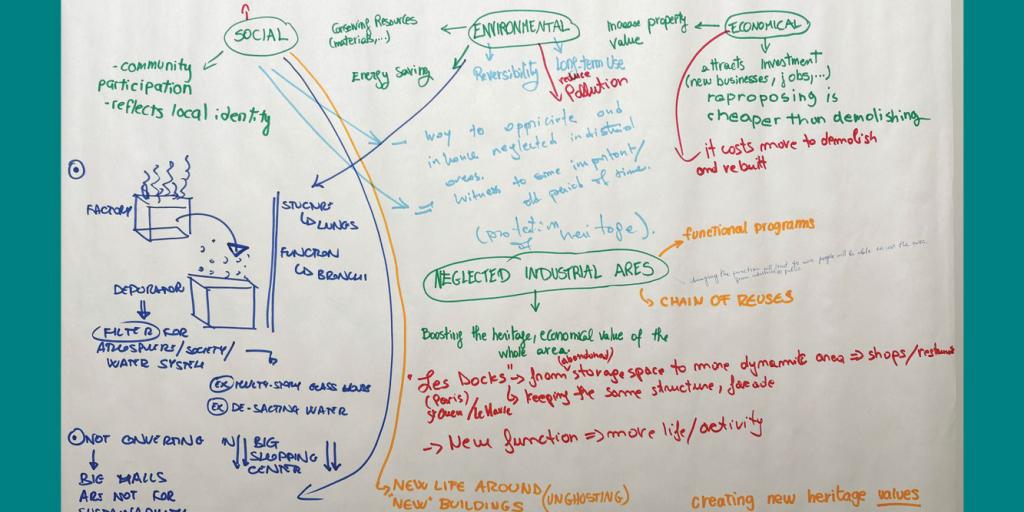 SOCIAL
-community
participation
-reflects local identity
Conserving Resources
(materials,...)
Energy Saving
ENVIRONMENTAL
Reversibility
Long-term Use
reduce
Pollution
Increase property
value
ECONOMICAL
attracts Investment
(new businesses, jobs,...)
reproposing is
cheaper than demolishing
it costs more to demolish
and rebuilt
- way to appriciate and
inhance neglected industrial
areas.
= Witness to some important/
old period of time.
(protection of heritage).
FACTORY
DEPURATOR
FILTER FOR
ATMOSPHERS/SOCIETY/
WATER SYSTEM
STUCTURE
LUNGS
FUNCTION
BRONCHI
EX MULTI-STORY GLASS HOUSE
EX DE-SALTING WATER
NOT CONVERTING IN BIG
SHOPPING
CENTER
BIG MALLS
ARE NOT FOR
SUSTAINABILITY
NEGLECTED INDUSTRIAL ARES
functional programs
CHAIN OF REUSES
Boosting the heritage, economical value of the
whole area.
(abandoned)
"Les Docks" → from storage space to more dynamic area ⇒ shops/restaurant
(Paris) keeping the same structure, facade
St Ouen/Le Havre
→ New function ⇒ more life/activity
NEW LIFE AROUND
"NEW" BUILDINGS (UNGHOSTING)
creating new heritage values